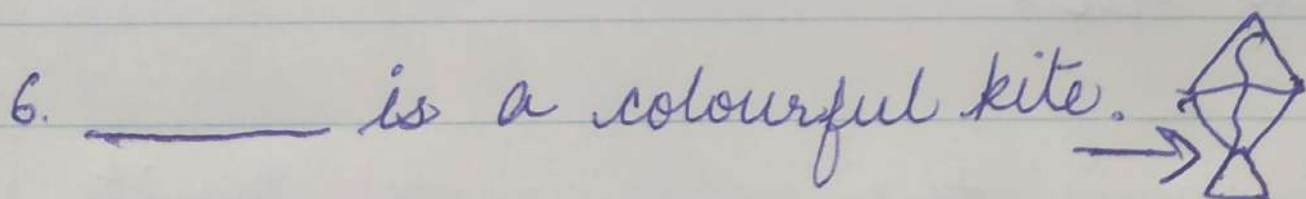 6. ______ is a colourful kite.